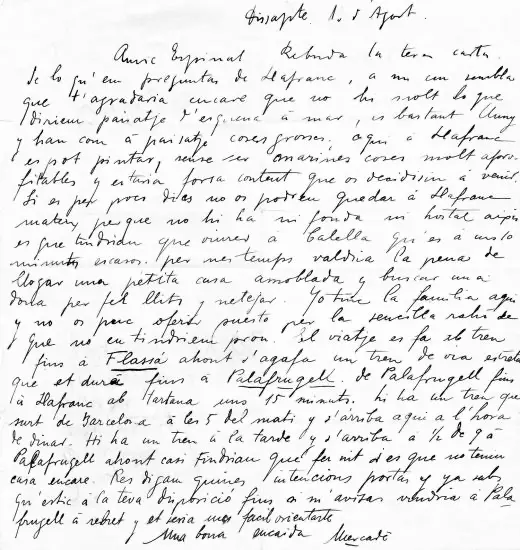 Dissapte, 1, d'Agost.
Amic Espinal Rebuda la teva carta
de lo qu'em preguntas de Llafranc, a mi em sembla
que t'agradaria encare que no hi molt lo que
diriem paisatge d'esquena à mar, es bastant lluny
y han com à paisatje coses grosses. aqui à Llafranc
es pot pintar, sense ser marines coses molt aprofitables
y estaria forsa content que os decidissin à venir.
Si es per pocs dies no os podreu quedar à Llafranc
mateix, perque no hi ha ni fonda ni hostal aixis
es que tindrian que viurer à Calella qu'es à uns 10
minuts escasos. per mes temps valdria la pena de
llogar una petita casa amoblada y buscar una
dona per fel llits y netejar. Jo tinc la familia aqui
y no os puc oferir puesto per la sencilla rahó de
que no en tindriem prou. El viatge es fa ab tren
fins à Flassá ahont s'agafa un tren de via estreta
que et durá fins à Palafrugell. de Palafrugell fins
à Llafranc ab tartana uns 15 minuts. hi ha un tren que
surt de Barcelona à les 5 del mati y s'arriba aqui a l'hora
de dinar. Hi ha un tren à la tarde y s'arriba à ½ de 9 à
Palafrugell ahont casi tindrian que fer nit si es que no teniu
casa encare. Res digam quines intencions portas y ya sabs
qu'estic à la teva disposició fins si m'avisas vendria à Palafrugell
à rebret y et seria mes facil orientarte
Una bona encaixada Mercadé